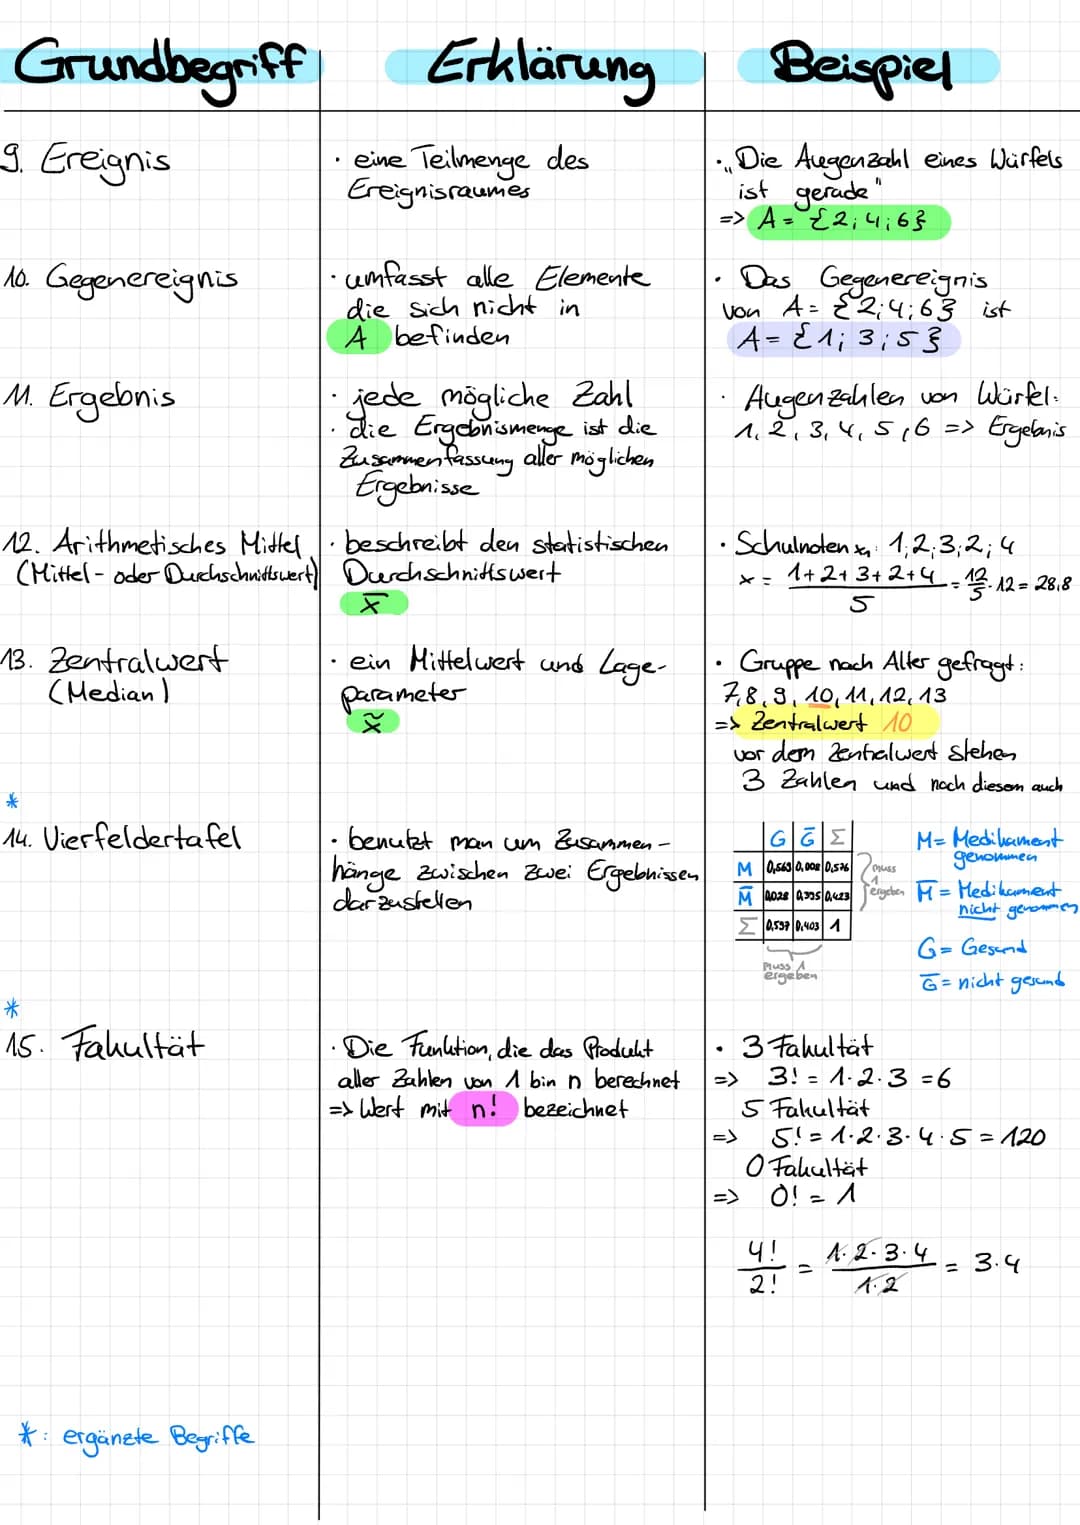 Grundbegriff
Erklärung
Beispiel
9. Ereignis
· eine Teilmenge des
Ereignisraumes
· „Die Augenzahl eines Würfels
ist gerade"
=> A = {2; 4; 6}
10. Gegenereignis
· umfasst alle Elemente
die sich nicht in
A befinden
· Das Gegenereignis
von A = {2; 4; 6} ist
A = {1; 3; 5}
11. Ergebnis
· jede mögliche Zahl
· die Ergebnismenge ist die
Zusammenfassung aller möglichen
Ergebnisse
· Augenzahlen von Würfel:
1, 2, 3, 4, 5, 6 => Ergebnis
12. Arithmetisches Mittel
(Mittel- oder Durchschnittswert)
· beschreibt den statistischen
Durchschnittswert
x̅
· Schulnoten x₁: 1; 2; 3; 2; 4
x = 1+2+3+2+4 / 5 = 12/5 · 12 = 28,8
13. Zentralwert
(Median)
· ein Mittelwert und Lage-
parameter
x̃
· Gruppe nach Alter gefragt:
7, 8, 9, 10, 11, 12, 13
=> Zentralwert 10
vor dem Zentralwert stehen
3 Zahlen und nach diesem auch
*
14. Vierfeldertafel
· benutzt man um Zusammen-
hänge zwischen zwei Ergebnissen
darzustellen
G G̅ Σ
M 0,563 0,008 0,576
M̅ 0,028 0,395 0,423
Σ 0,597 0,403 1
muss
1
ergeben
Muss 1
ergeben
M = Medikament
genommen
M̅ = Medikament
nicht genommen
G = Gesund
G̅ = nicht gesund
*
15. Fakultät
· Die Funktion, die das Produkt
aller Zahlen von 1 bin n berechnet
=> Wert mit n! bezeichnet
· 3 Fakultät
=> 3! = 1·2·3 = 6
5 Fakultät
=> 5! = 1·2·3·4·5 = 120
0 Fakultät
=> 0! = 1
4!/2! = 1·2·3·4 / 1·2 = 3·4
*: ergänzte Begriffe